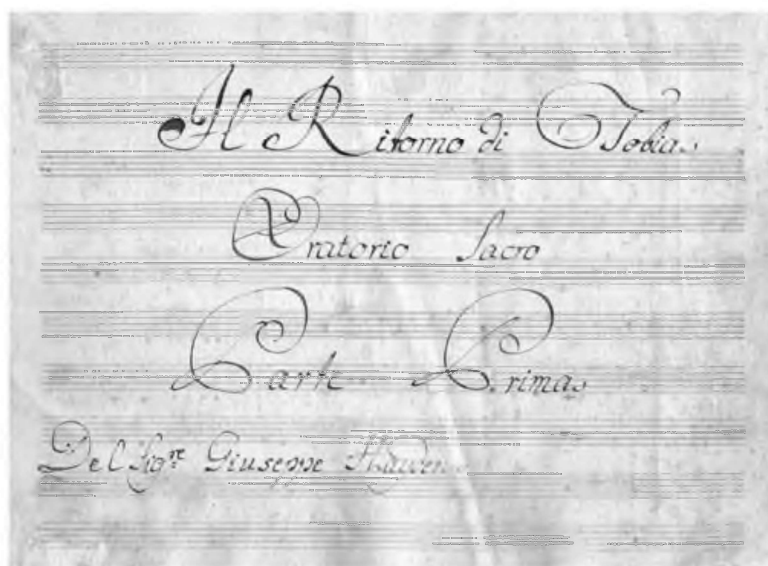 Il Ritorno di Tobia
Oratorio Sacro
Parte Prima
Del Sig.re Giuseppe Hayden